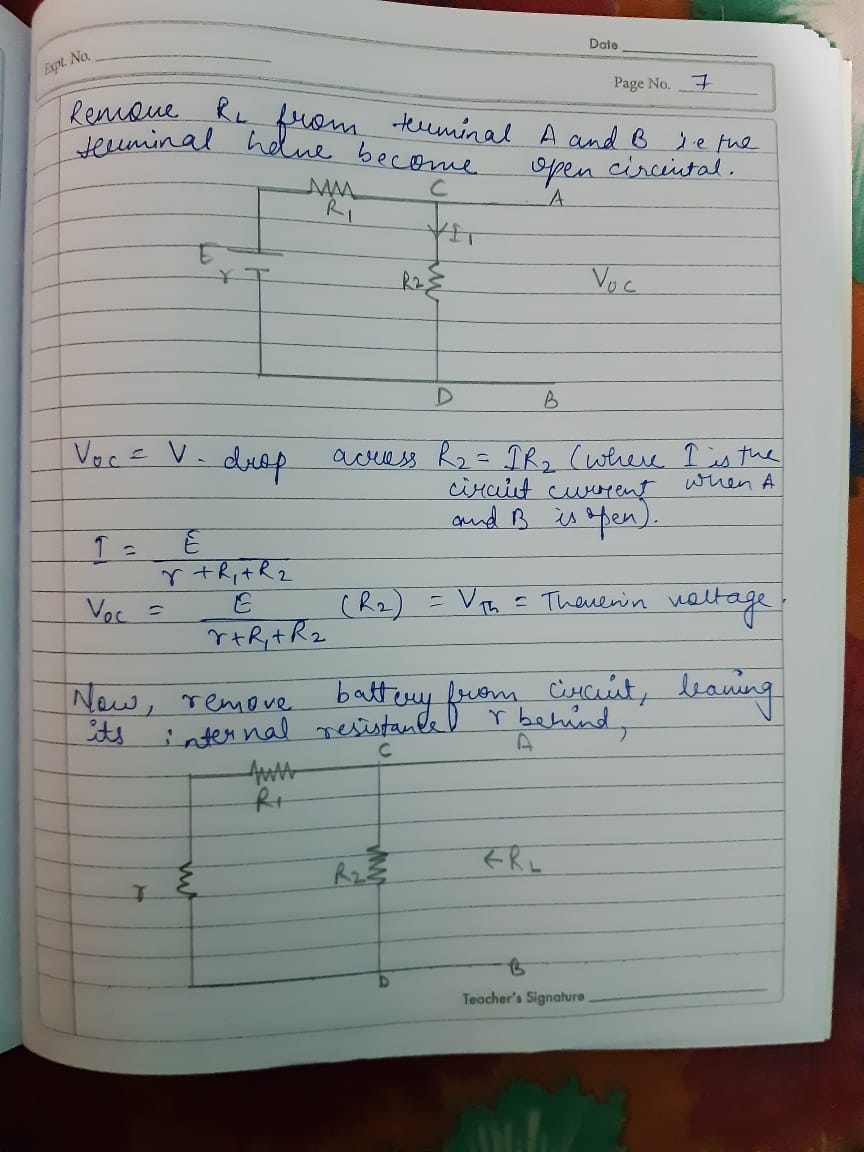 Date
Expt. No.
Page No. 7
Remove RL from terminal A and B i.e the
terminal have become open circuital.
R1
C
A
I1
E
r
R2
VOC
D
B
VOC = V. drop across R2 = IR2 (where I is the
circuit current when A
and B is open).
I = E / r + R1 + R2
VOC = E / r + R1 + R2 (R2) = VTh = Thevenin voltage.
Now, remove battery from circuit, leaving
its internal resistance r behind,
C
A
R1
r
R2
←RL
B
D
Teacher's Signature